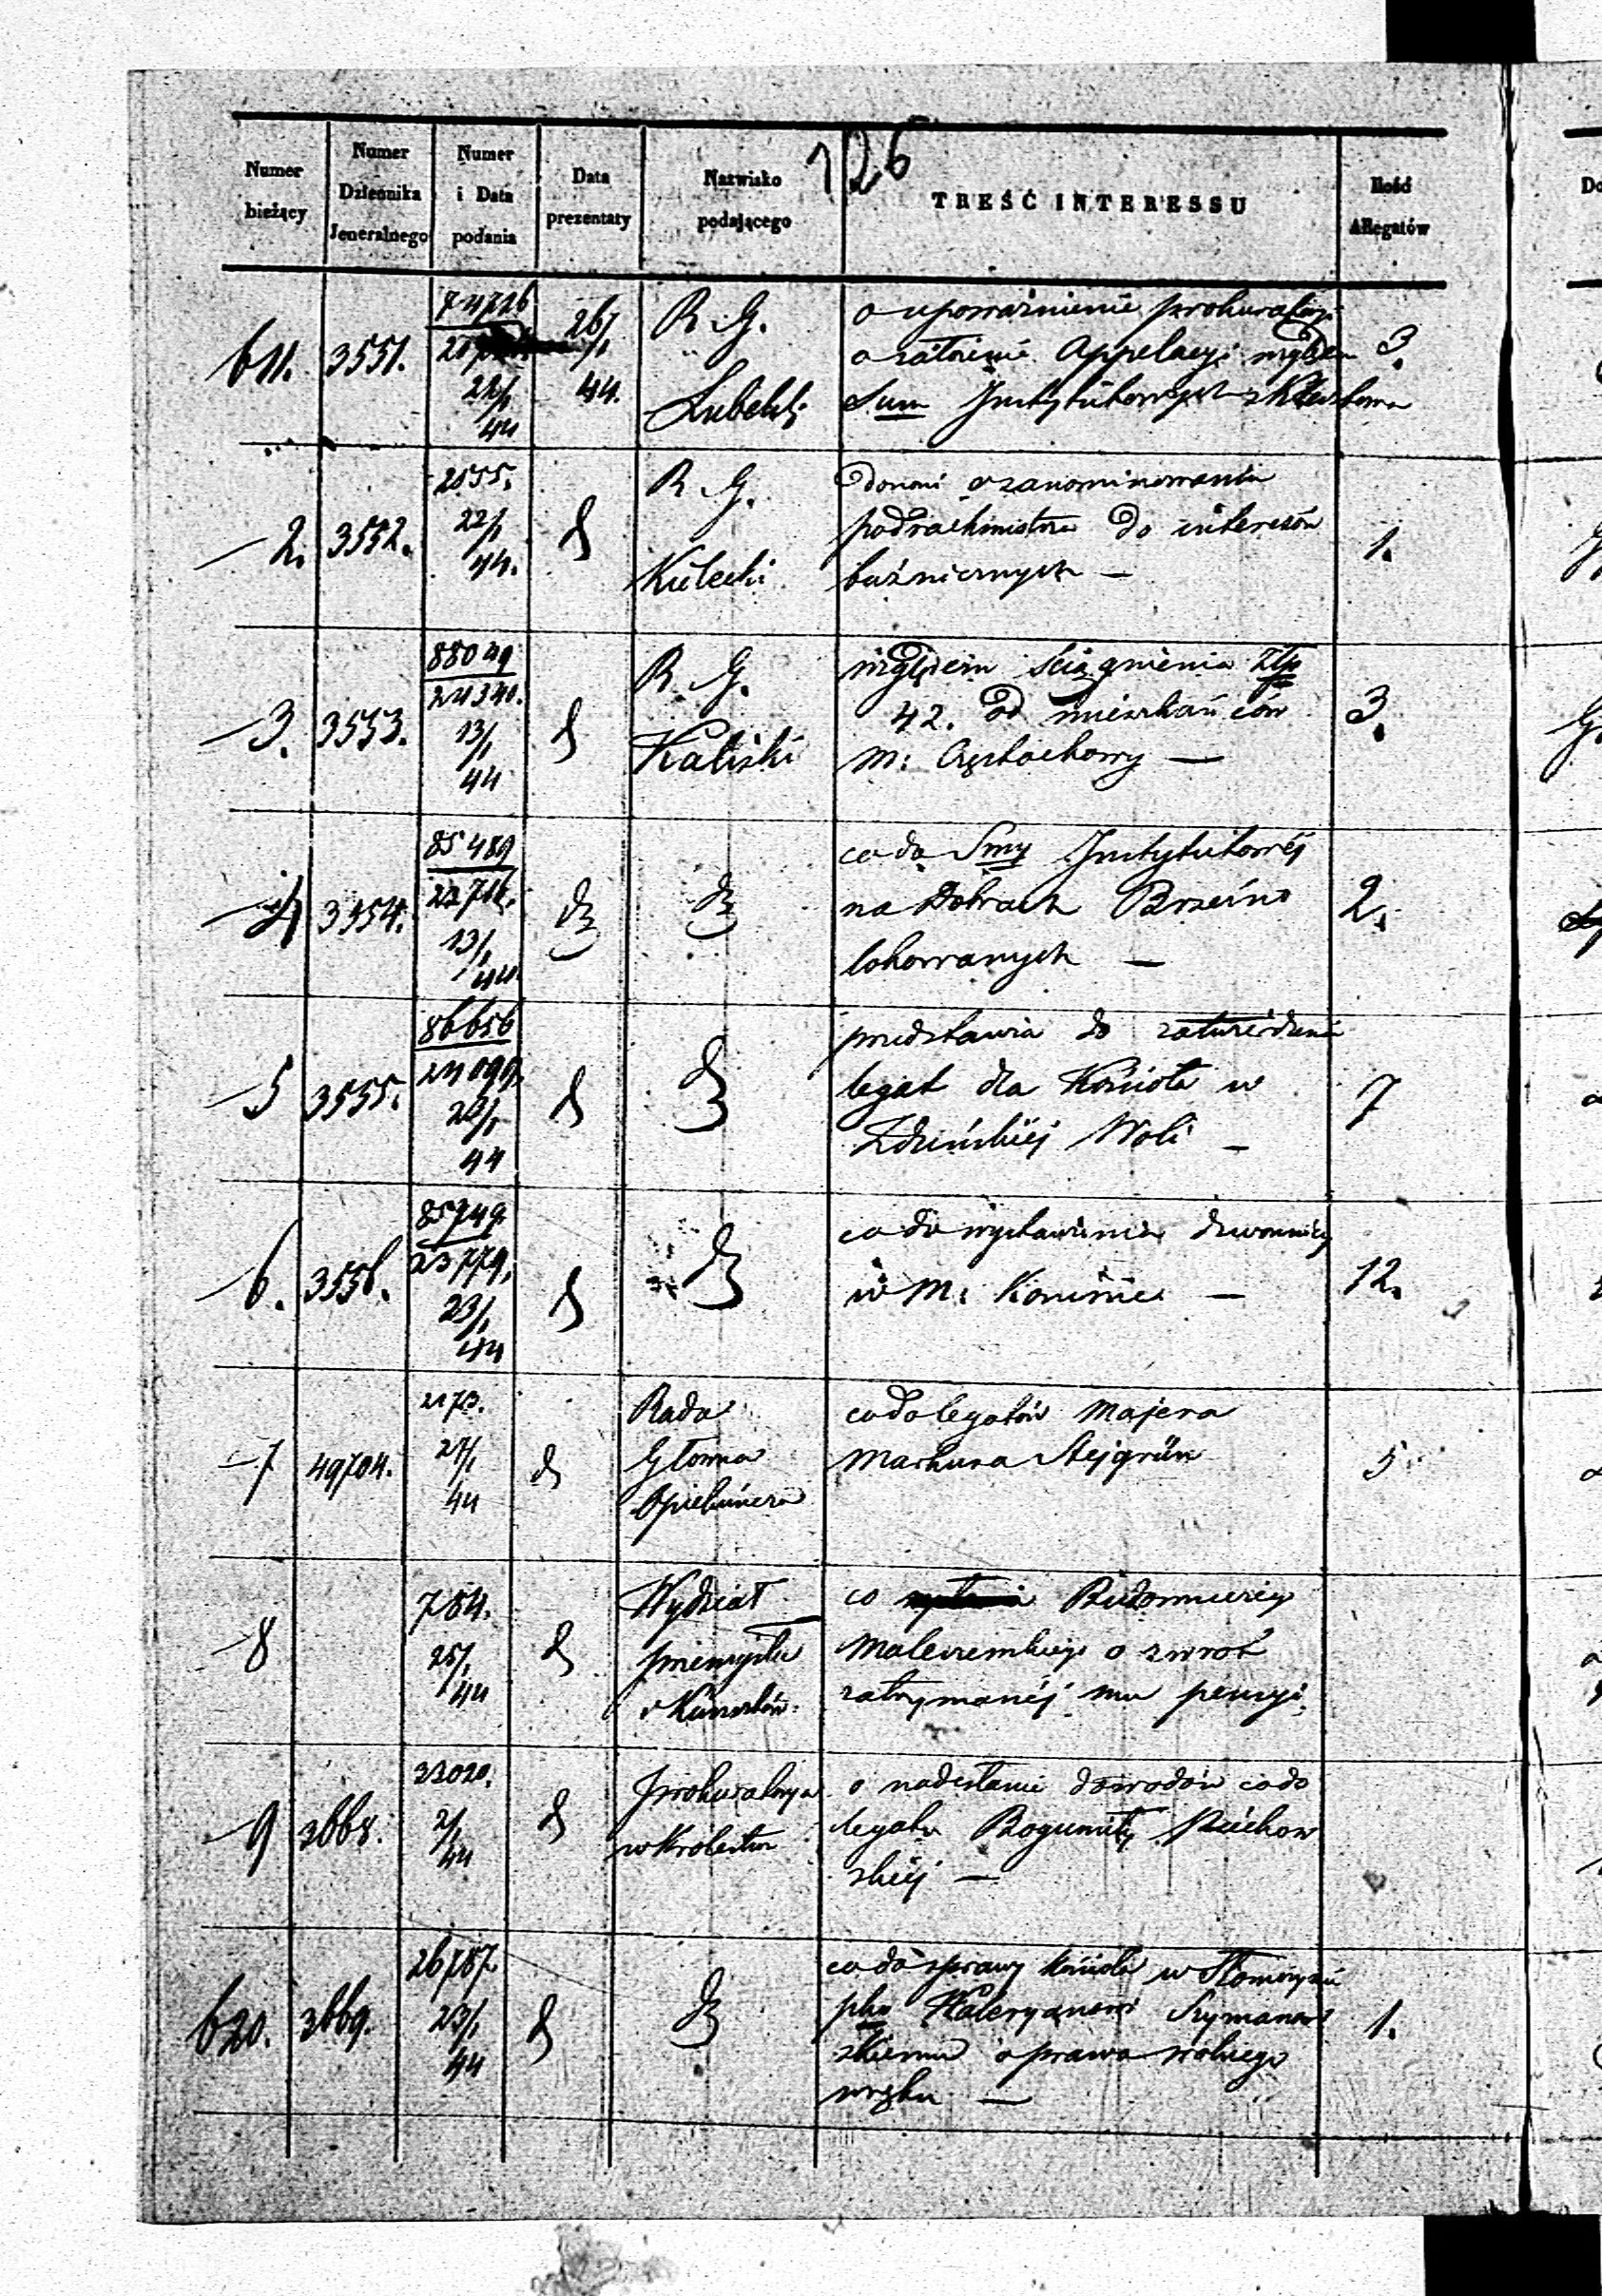 126
Numer bieżący
Numer Dziennika Jeneralnego
Numer i Data podania
Data prezentaty
Nazwisko podającego
TREŚĆ INTERESSU
Ilość Allegatów
611. 3551. 74716 22/1 44 26/1 44. R. G. Lubelski 3.
o upoważnienie prokuratoryi
o założenie Appelacyi względem
Sum Instytutowych
2. 3552. 2555. 22/1 44. d R. G. Kielecki 1.
donosi o zanominowaniu
podrachmistrza do interesów
bóżnicznych —
3. 3553. 88049 24340. 13/1 44 d R. G. Kaliski 3.
względem ściągnienia Złp
42. od mieszkańców
m: Częstochowy —
4 3554. 85489 23716. 13/1 44 d d 2.
co do Smy Instytutowéj
na Dobrach Brzeźno
lokowanych —
5 3555. 86656 24099. 20/1 44 d d 7
przedstawia do zatwierdzenia
legat dla Kościoła w
Zduńskiéj Woli —
6. 3556. 85749 23779. 23/1 44 d d 12.
co do wystawienia dzwonnicy
w M: Koninie —
7 49704. 2173. 27/1 44 d Rada Główna Opiekuńcza 5
co do legatów Majera
Markusa Stejgrün
8 784. 25/1 44 d Wydział Przemysłu i Kunsztów
co Budowniczego
o zwrot
zatrzymanéj mu pensyi.
9 3668. 33020. 2/1 44 d Prokuratorya w Królestwie
o nadesłanie dowodów co do
legatu Bogumiły
skiéj —
620. 3669. 26787 23/1 44 d d 1.
co do sprawy kościoła w
pko Waleryanowi Szymanow
skiemu o prawo wolnego
wrębu —